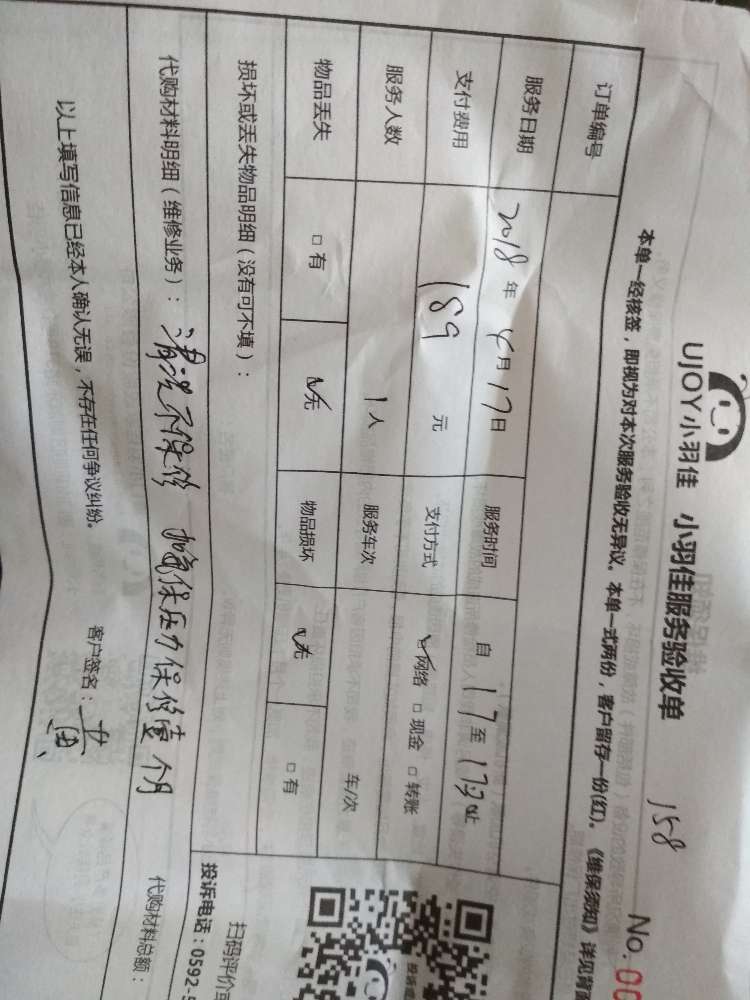 UJOY小羽佳 小羽佳服务验收单
158
No. 00
本单一经核签，即视为对本次服务验收无异议。本单一式两份，客户留存一份(红)。《维保须知》详见背
订单编号
服务日期 2018年4月17日 服务时间 自17至1730止
支付费用 189元 支付方式 ✓网络 □现金 □转账
服务人数 1人 服务车次 车/次
物品丢失 □有 ✓无 物品损坏 ✓无 □有
损坏或丢失物品明细（没有可不填）：
代购材料明细（维修业务）：清洗不保修 加氟保压力保修壹个月
代购材料总额：
以上填写信息已经本人确认无误，不存在任何争议纠纷。
客户签名：
扫码评价或
投诉电话：0592-5